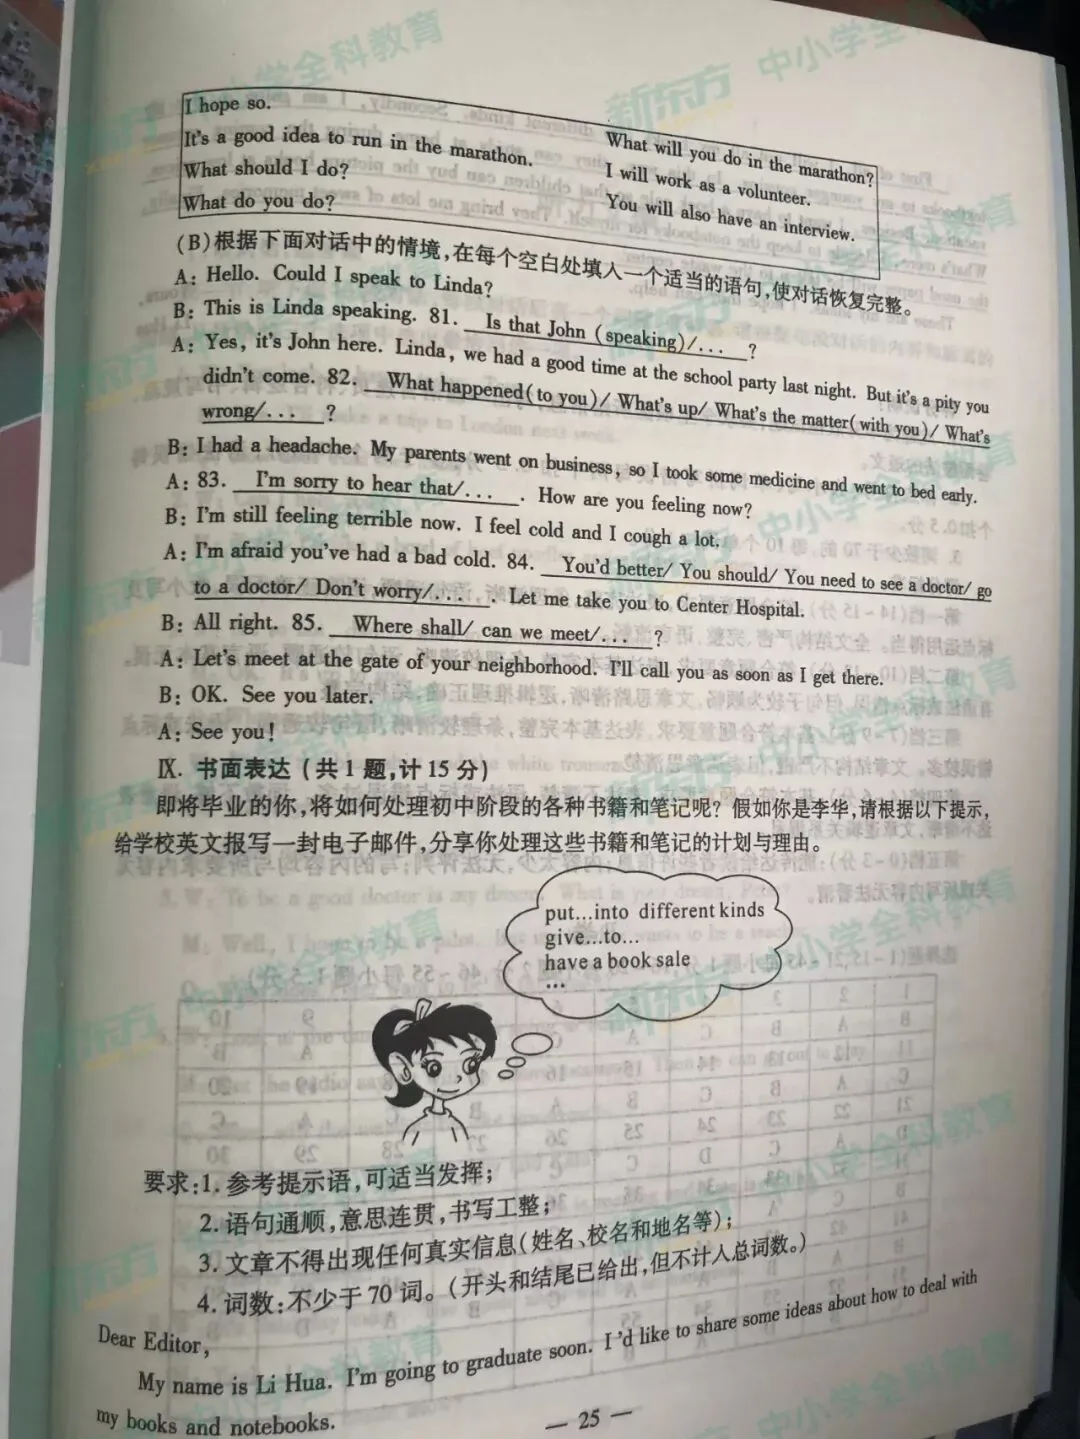 I hope so.
It's a good idea to run in the marathon.
What should I do?
What do you do?
What will you do in the marathon?
I will work as a volunteer.
You will also have an interview.
(B)根据下面对话中的情境,在每个空白处填入一个适当的语句,使对话恢复完整。
A: Hello. Could I speak to Linda?
B: This is Linda speaking. 81. Is that John (speaking)/... ?
A: Yes, it's John here. Linda, we had a good time at the school party last night. But it's a pity you
didn't come. 82. What happened(to you)/ What's up/ What's the matter(with you)/ What's
wrong/... ?
B: I had a headache. My parents went on business, so I took some medicine and went to bed early.
A: 83. I'm sorry to hear that/... . How are you feeling now?
B: I'm still feeling terrible now. I feel cold and I cough a lot.
A: I'm afraid you've had a bad cold. 84. You'd better/ You should/ You need to see a doctor/ go
to a doctor/ Don't worry/... . Let me take you to Center Hospital.
B: All right. 85. Where shall/ can we meet/... ?
A: Let's meet at the gate of your neighborhood. I'll call you as soon as I get there.
B: OK. See you later.
A: See you!
Ⅸ. 书面表达 (共1题,计15分)
即将毕业的你,将如何处理初中阶段的各种书籍和笔记呢? 假如你是李华,请根据以下提示,
给学校英文报写一封电子邮件,分享你处理这些书籍和笔记的计划与理由。
put...into different kinds
give...to...
have a book sale
...
要求:1. 参考提示语,可适当发挥;
2. 语句通顺,意思连贯,书写工整;
3. 文章不得出现任何真实信息(姓名、校名和地名等);
4. 词数:不少于70词。(开头和结尾已给出,但不计入总词数。)
Dear Editor,
My name is Li Hua. I'm going to graduate soon. I'd like to share some ideas about how to deal with
my books and notebooks.
— 25 —
新东方 中小学全科教育